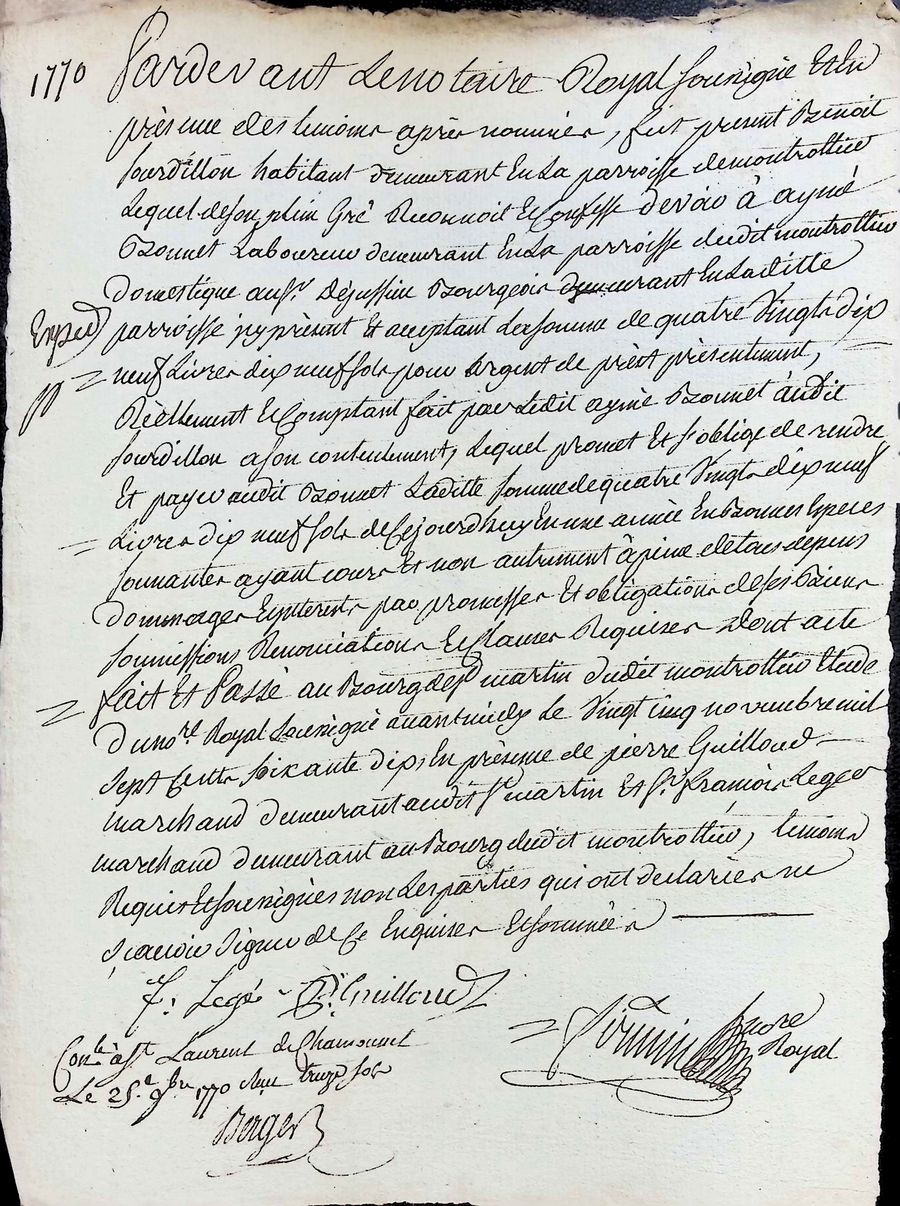 1770
Pardevant Le notaire Royal sousigné Et En
présence des temoins après nommés, fut present Benoit
Jourdillon habitant demeurant En La parroisse de montrottier
Lequel de son plein Gré Reconnoit Et Confesse devoir à aymé
Bonnet Laboureur demeurant En La parroisse dudit montrottier
Domestique au Sr. Bourgeois demeurant En Laditte
Exped
parroisse icy présent Et acceptant La somme de quatre Vingts dix
neuf Livres dix neuf sols pour argent de prêt présentement,
Réellement Et Comptant fait par Ledit aymé Bonnet audit
Jourdillon a son contentement, Lequel promet Et s'oblige de rendre
Et payer audit Bonnet Laditte somme de quatre Vingts dix neuf
Livres dix neuf sols de Cejourdhuy En une année En Bonnes Especes
sonnantes ayant cours Et non autrement à peine de tous depens
Dommages Et interets par promesses Et obligations de ses Biens
soumissions Renonciations Et Clauses Requises Dont acte
fait Et Passé au Bourg de St martin dudit montrottier Etude
Du nore. Royal sousigné avant midy Le Vingt cinq novembre mil
sept Cents soixante dix, En présence de pierre Guilloud
marchand demeurant audit St martin Et Sr. françois Leger
marchand demeurant au Bourg dudit montrottier, temoins
Requis Et sousignés non Les parties qui ont declarées ne
sçavoir signer de Ce Enquises Et sommées
f: Legé Pre Guilloud
Conlé à St Laurent de Chamousset
Le 25e. 9bre 1770 Reçu treize sols
Berger
notre
Royal